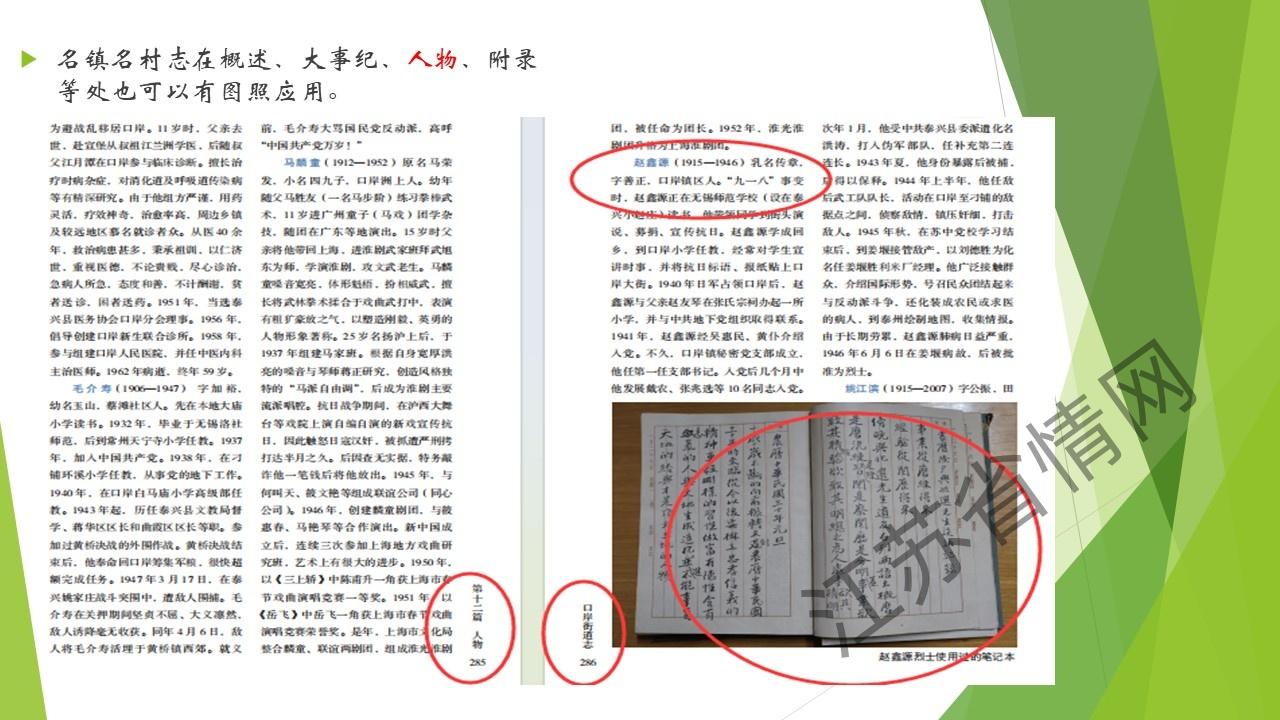 名镇名村志在概述、大事纪、人物、附录
等处也可以有图照应用。
为避战乱移居口岸。11岁时，父亲去
世，赴宣堡从叔祖江兰洲学医，后随叔
父江月潭在口岸参与临床诊断。擅长治
疗时病杂症，对消化道及呼吸道传染病
等有精深研究。由于他组方严谨，用药
灵活，疗效神奇，治愈率高，周边乡镇
及较远地区慕名就诊者众。从医40余
年，救治病患甚多，秉承祖训，以仁济
世，重视医德，不论贵贱，尽心诊治，
急病人所急，态度和善，不计酬谢，贫
者送诊，困者送药。1951年，当选泰
兴县医务协会口岸分会理事。1956年，
倡导创建口岸新生联合诊所。1958年，
参与组建口岸人民医院，并任中医内科
主治医师。1962年病逝，终年59岁。
毛介寿（1906—1947） 字加裕，
幼名玉山，蔡滩社区人。先在本地大庙
小学读书。1932年，毕业于无锡洛社
师范，后到常州天宁寺小学任教。1937
年，加入中国共产党。1938年，在刁
铺环溪小学任教，从事党的地下工作。
1940年，在口岸白马庙小学高级部任
教。1943年起，历任泰兴县文教局督
学、蒋华区区长和曲霞区区长等职。参
加过黄桥决战的外围作战。黄桥决战结
束后，他奉命回口岸筹集军粮，很快超
额完成任务。1947年3月17日，在泰
兴姚家庄战斗突围中，遭敌人围捕。毛
介寿在关押期间坚贞不屈、大义凛然，
敌人诱降毫无收获。同年4月6日，敌
人将毛介寿活埋于黄桥镇西郊。就义
前，毛介寿大骂国民党反动派，高呼
“中国共产党万岁！”
马麟童（1912—1952）原名马荣
发，小名四九子，口岸洲上人。幼年
随父马胜友（一名马步阶）练习拳棒武
术，11岁进广州童子（马戏）团学杂
技，随团在广东等地演出。15岁时父
亲将他带回上海，进淮剧武家班拜武旭
东为师，学演淮剧，攻文武老生。马麟
童嗓音宽亮，体形魁梧，扮相威武，擅
长将武林拳术揉合于戏曲武打中，表演
有粗犷豪放之气，以塑造刚毅、英勇的
人物形象著称。25岁名扬沪上后，于
1937年组建马家班。根据自身宽厚洪
亮的嗓音与琴师蒋正研究，创造风格独
特的“马派自由调”，后成为淮剧主要
流派唱腔。抗日战争期间，在沪西大舞
台等戏院上演自编自演的新戏宣传抗
日，因此触怒日寇汉奸，被抓遭严刑拷
打达半月之久。后因查无实据，特务敲
诈他一笔钱后将他放出。1945年，与
何叫天、筱文艳等组成联谊公司（同心
公司）。1946年，创建麟童剧团，与筱
惠春、马艳琴等合作演出。新中国成
立后，连续三次参加上海地方戏曲研
究班，艺术上有很大的进步。1950年，
以《三上轿》中陈甫升一角获上海市春
节戏曲演唱竞赛一等奖。1951年，以
《岳飞》中岳飞一角获上海市春节戏曲
演唱竞赛荣誉奖。是年，上海市文化局
整合麟童、联谊两剧团，组成淮光淮剧
第十二篇 人物
285
团，被任命为团长。1952年，淮光淮
剧团升格为上海淮剧团。
赵鑫源（1915—1946）乳名传章，
字善正，口岸镇区人。“九一八”事变
时，赵鑫源正在无锡师范学校（设在泰
兴小赵庄）读书。他带领同学到街头演
说、募捐、宣传抗日。赵鑫源学成回
乡，到口岸小学任教，经常对学生宣
讲时事，并将抗日标语、报纸贴上口
岸大街。1940年日军占领口岸后，赵
鑫源与父亲赵友琴在张氏宗祠办起一所
小学，并与中共地下党组织取得联系。
1941年，赵鑫源经吴惠民、黄仆介绍
入党。不久，口岸镇秘密党支部成立，
他任第一任支部书记。入党后几个月中
他发展戴农、张兆选等10名同志入党。
次年1月，他受中共泰兴县委派遣化名
洪涛，打入伪军部队，任补充第二连
连长。1943年夏，他身份暴露后被捕，
后得以保释。1944年上半年，他任敌
后武工队队长，活动在口岸至刁铺的敌
据点之间，侦察敌情，镇压奸细，打击
敌人。1945年秋，在苏中党校学习结
束后，到姜堰接管敌产，以刘德胜为化
名任姜堰胜利米厂经理。他广泛接触群
众，介绍国际形势，号召民众团结起来
与反动派斗争，还化装成农民或求医
的病人，到泰州绘制地图，收集情报。
由于长期劳累，赵鑫源肺病日益严重，
1946年6月6日在姜堰病故，后被批
准为烈士。
姚江滨（1915—2007）字公振，田
口岸街道志
286
赵鑫源烈士使用过的笔记本
江苏省情网